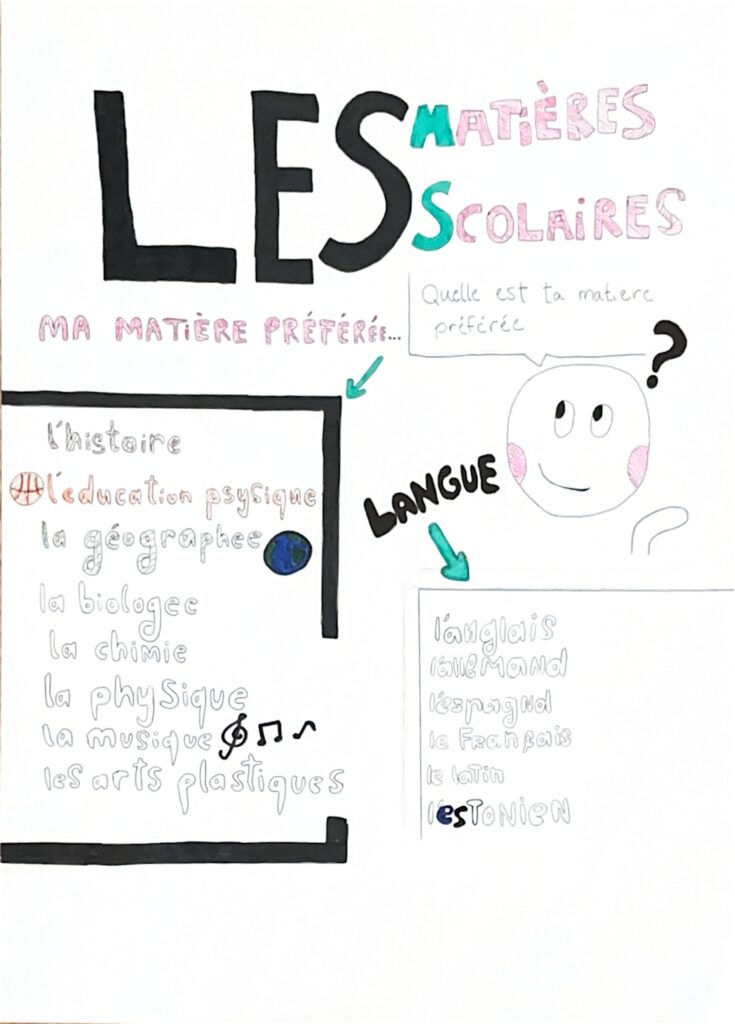 LES
MATIÈRES
SCOLAIRES
MA MATIÈRE PRÉFÉRÉE...
Quelle est ta matiere
préférée
?
l'histoire
l'education psysique
la géographee
la biologee
la chimie
la physique
la musique
les arts plastiques
LANGUE
l'anglais
l'alleMAND
l'éspagnol
le Français
le latin
l'esTONieN